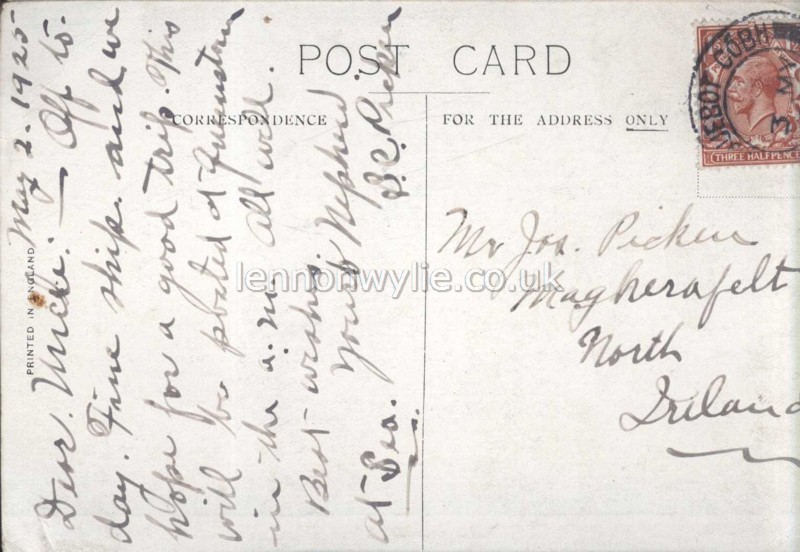 POST CARD
CORRESPONDENCE
FOR THE ADDRESS ONLY
PRINTED IN ENGLAND
May 2. 1925
Dear Uncle: Off to
day. Fine ship and we
hope for a good trip. This
will be posted at Queenstown
in the a.m. All well.
Best wishes.
Your Nephew.
at Sea. S.C. Picken
Mr Jos. Picken
Magherafelt
North
Ireland
COBH
3 MA
THREE HALFPENCE
lennonwylie.co.uk